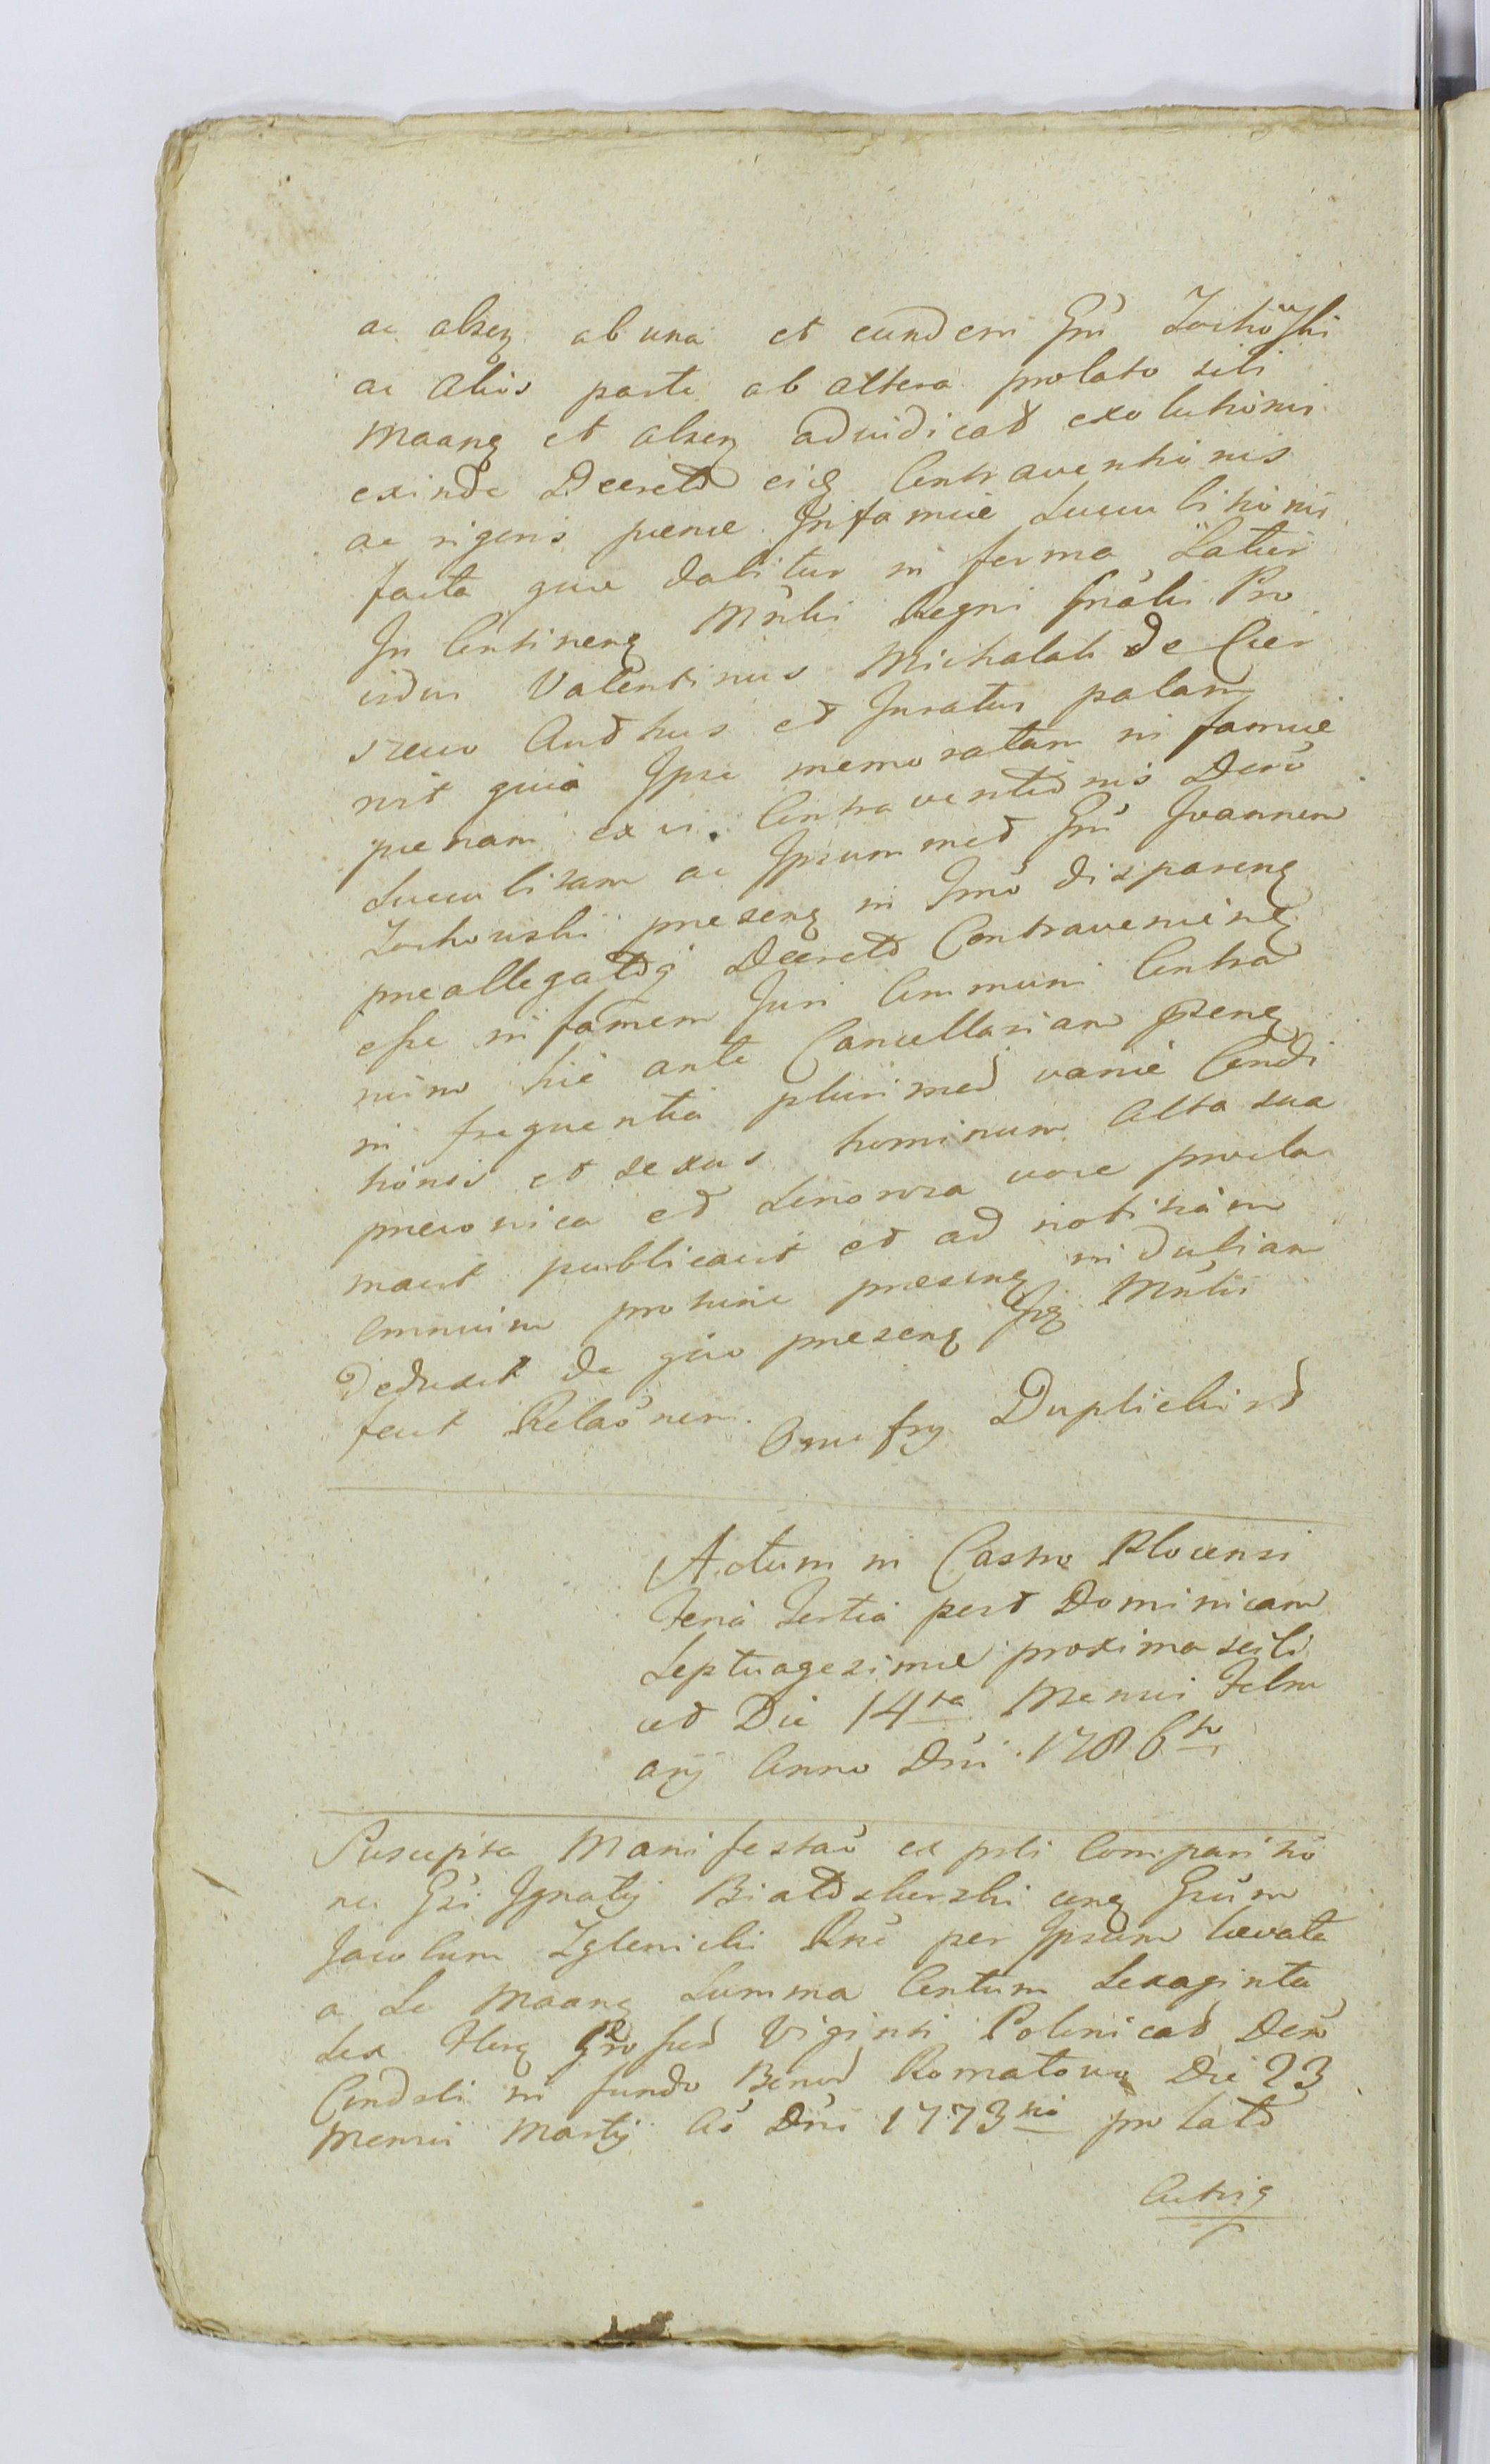 ac alseq ab una et eundem Gñ Zochowski
ac alios parte ab altera prolato sibi
Maanq et alseq adiudicat exolutionis
exinde Decretd eiq Contraventionis
ac rigoris pœnæ Infamiæ Luculitionis
facta quæ dabitur in forma Latius
In Continenq Mñlis Regni Gñalis Pro
vidus Valentinus Michalak de Cier
szewo Authus et Juratus palam
vit quia Ipse memoratam infamiæ
pœnam ex vi Contraventionis Decro
Luculisam ac Ipsummet Gñ Joannem
Zochowski præsenq in Imo disparenq
præallegatdq Decretd Contravenienq
esse infamem Juri Communi Contra
rium hic ante Cancellariam præsenq
in frequentia plurimed variæ Condi
tionis et sexus hominum Alta sua
præconica et Sonorosa voce procla
mavit publicavit et ad notitiam
Omnium protunc præsenq indubiam
Deduxit de quo præsenq Jiq Mñlis
fecit Relaõnem.
Onufry Duplicki
Actum in Castro Plocensi
Feria Tertia post Dominicam
Septuagesimæ proxima scili
cet Die 14ta Mensis Febru
arij Anno Dñi 1786to
Suscepta Manifestaõ ex psli Comparitio
ne Gsi Ignatij Białoskurski cunq Gsum
Jacobum Zglenicki Rnê per Ipsum levata
a Se Maanq Summa Centum Sexaginta
Sex Flenq Grossed Viginti Polonicad Decro
Condsli in fundo Bonod Romatowo Die 23
Mensis Martij Aõ Dñi 1773tio pro lato
Cutriq